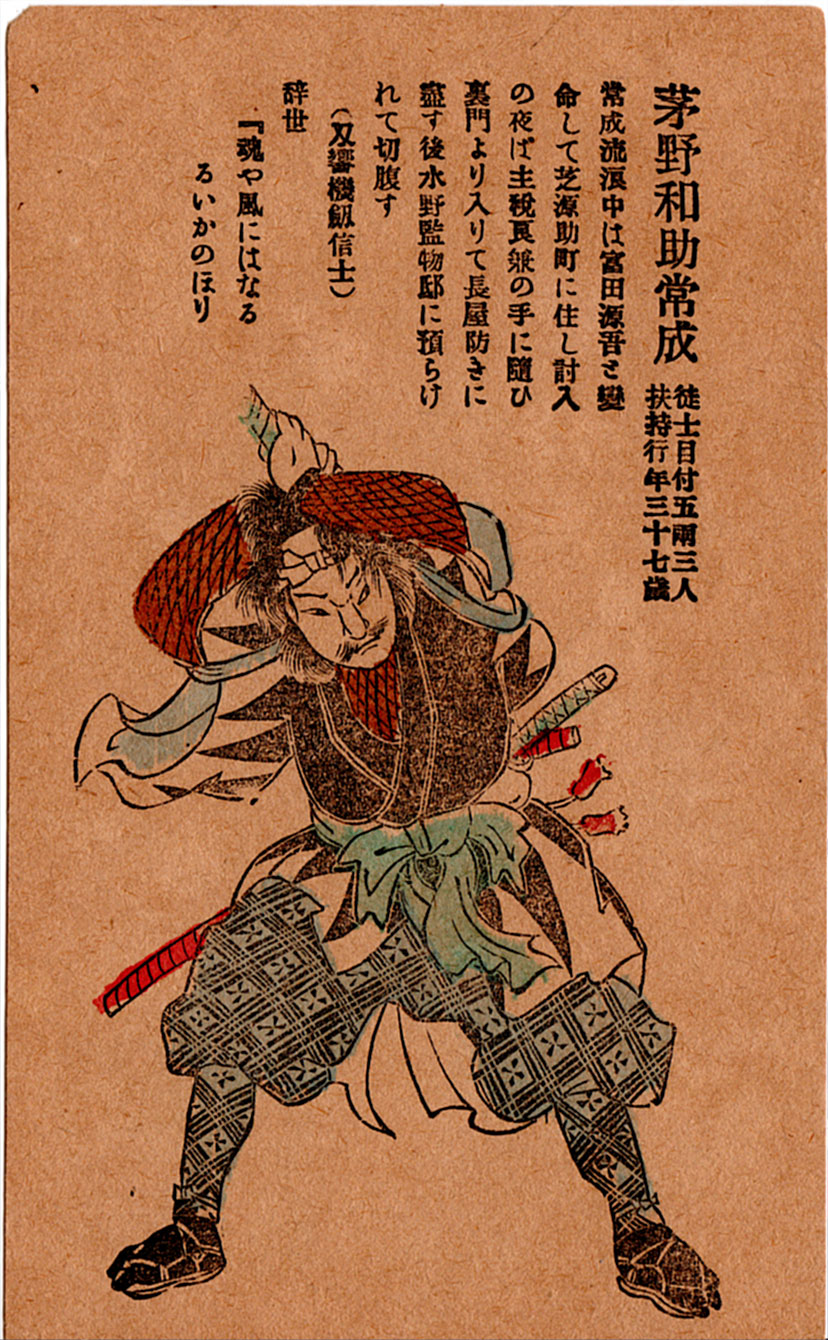 茅野和助常成
徒士目付五兩三人
扶持行年三十七歳
常成流浪中は富田源吾と變
命して芝源助町に住し討入
の夜は主税良兼の手に隨ひ
裏門より入りて長屋防きに
盡す後水野監物邸に預らけ
れて切腹す
（刄響機劔信士）
辞世
『魂や風にはなる
るいかのほり